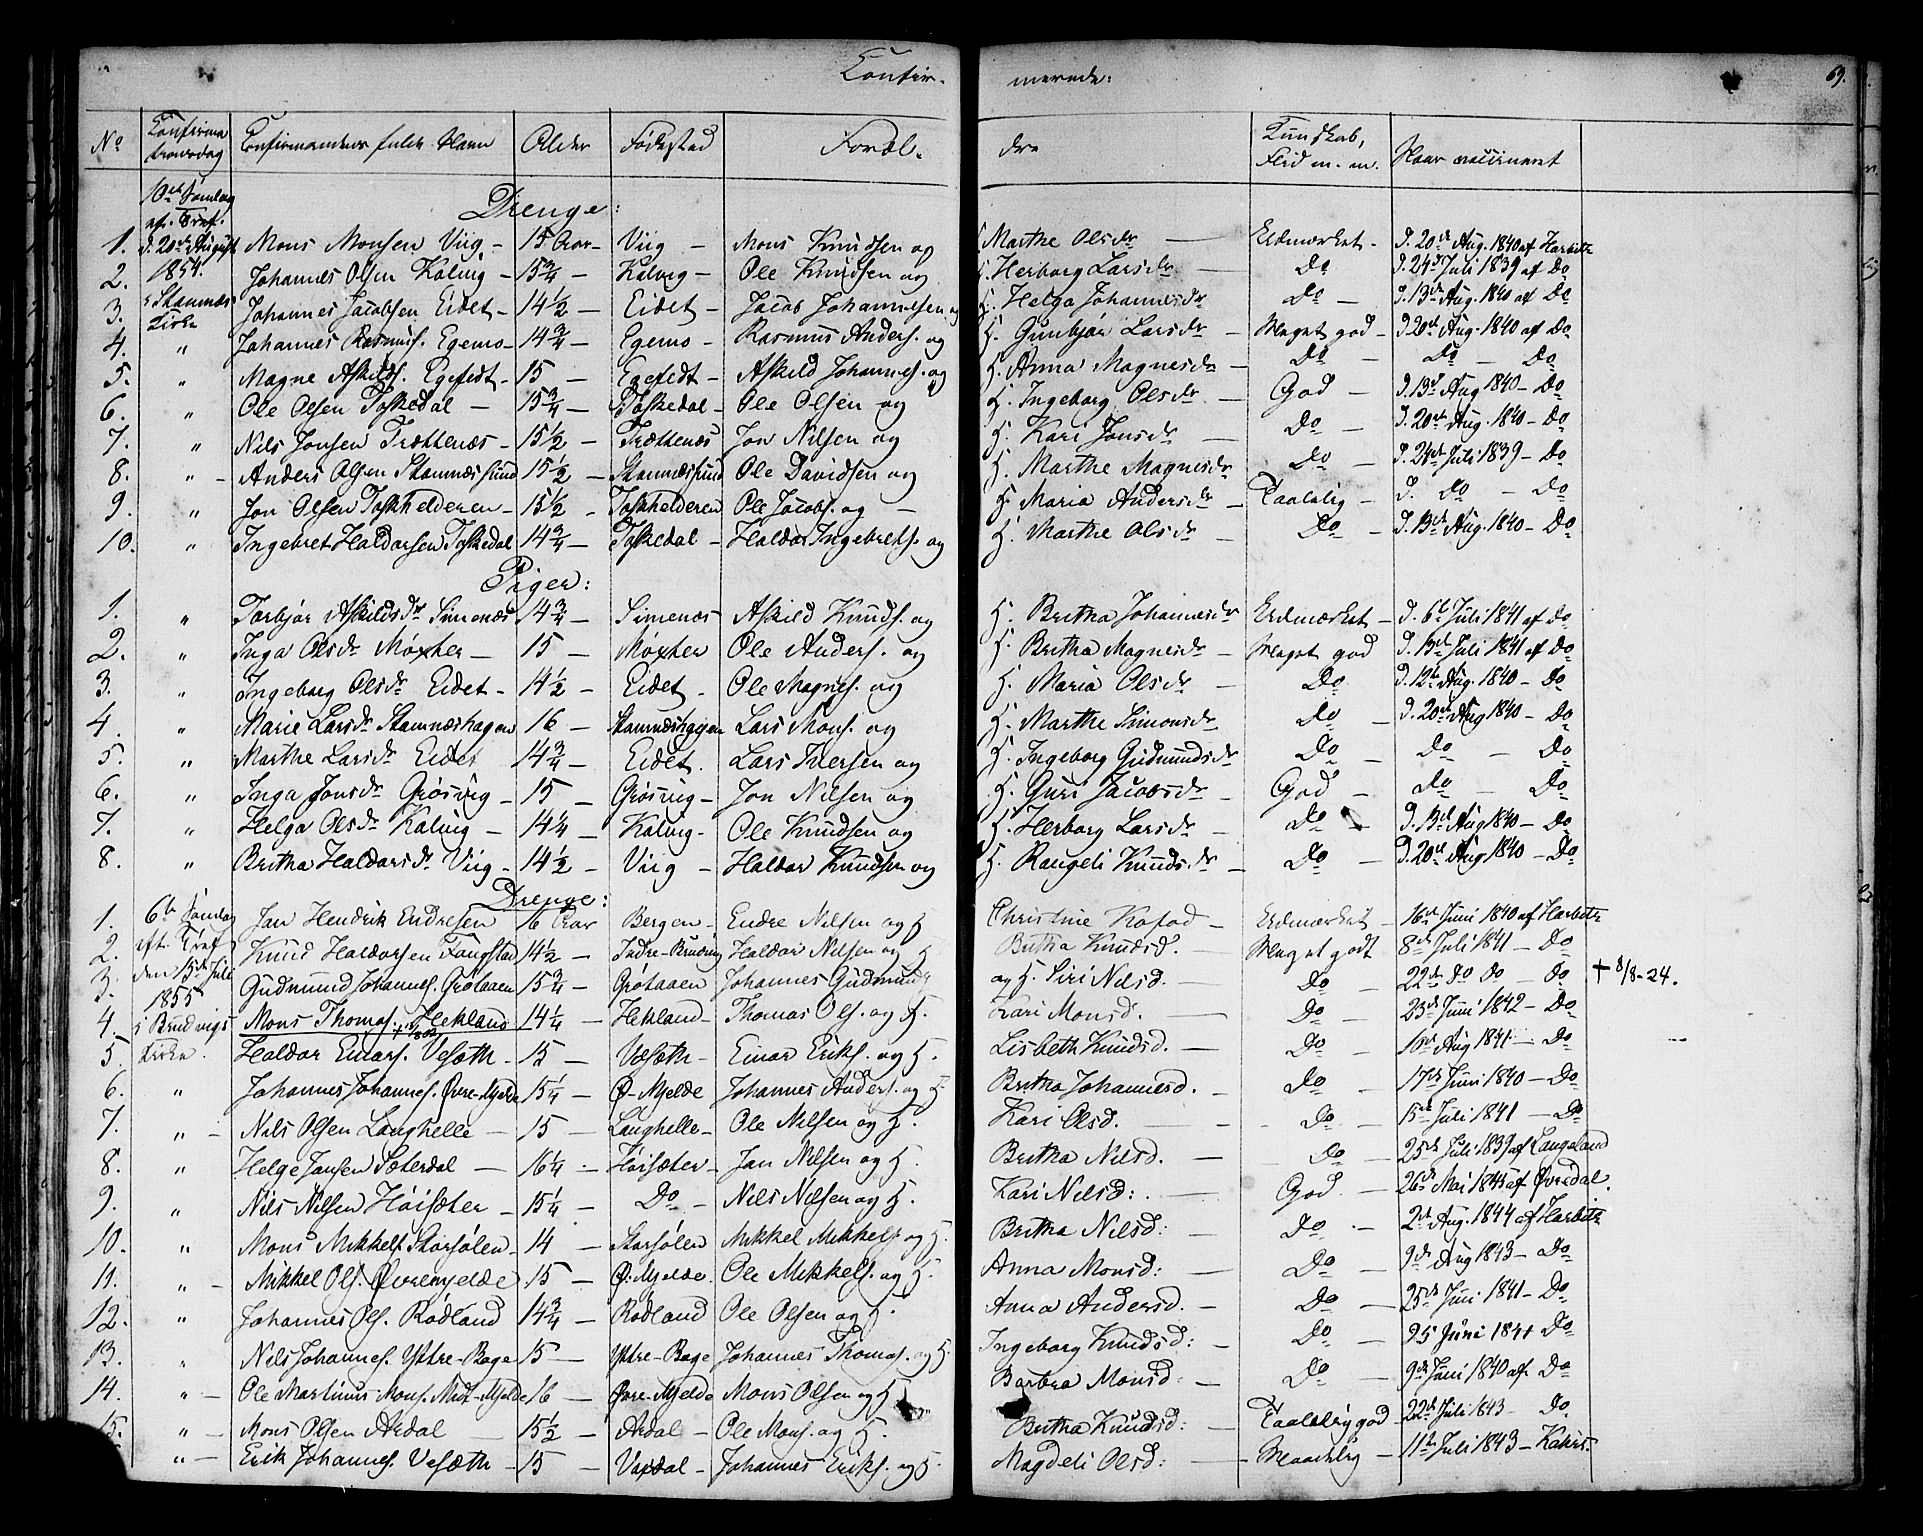 Confir- merede: 69.
No Confirmationsdag Confirmandens fulde Navn Alder Fødested Forældre Kundskab, Flid m. m. Naar vaccineret
10de Søndag eft. Tref. Drenge:
1. d. 20de August Mons Monsen Viig - 15 Aar - Viig - Mons Knudsen og H. Marthe Olsdr - Udmærket - D. 20de Aug. 1840 af Harbitz
2. 1854. Johannes Olsen Kalvig - 15 3/4 - Kalvig - Ole Knudsen og H. Herborg Larsdr - Do D. 24de Juli 1839 af Do
3. i Stamnæs Johannes Jacobsen Eidet - 14 1/2 - Eidet - Jacob Johannesen og H. Helga Johannesdr Do - D. 13de Aug. 1840 af Do
Kirke
4. " Johannes Rasmus. Egemo - 14 3/4 - Egemo - Rasmus Anders. og H. Gunbjør Larsdr - Meget god - D 20de Aug. 1840 af Do
5. " Magne Askilds. Egefedt - 15 - Egefedt - Askild Johannes. og H. Anna Magnesdr - Do - Do - Do
6. " Ole Olsen Toskedal - 15 3/4 - Toskedal - Ole Olsen og H. Ingeborg Olsdr - God - D. 13de Aug 1840 - Do
7. " Nils Jonsen Trættenæs - 15 1/2 - Trættenæs Jon Nilsen og H. Kari Jonsdr - Do - D. 20de Aug. 1840 - Do
8. " - Anders Olsen Stamnæssund 15 1/2 - Stamnæssund Ole Davidsen og H. Marthe Magnesdr Do - D. 24de Juli 1839 - Do
9. " Jon Olsen Toskhelderen - 15 1/2 - Toskhelderen Ole Jacobs. og - H. Maria Andersdr - Taalelig - D. Do - Do
10. " Ingebret Haldorsen Toskedal 14 3/4 - Toskedal - Haldor Ingebrets. og H. Marthe Olsdr - Do - D. 13de Aug. 1840 - Do
Piger:
1. " Torbjør Askildsdr Simenæs 14 3/4 - Simenæs Askild Knuds. og H. Britha Johannesdr Udmærket - D. 6te Juli 1841 af Do
2. " Inga Olsdr Møxter - 15 - Møxter Ole Anders. og H. Britha Magnesdr - Meget god D. 13de Juli 1841 af Do
3. " Ingeborg Olsdr Eidet - 14 1/2 - Eidet - Ole Magnes. og H. Maria Olsdr - Do D. 12te Aug. 1840 - Do
4. " Marie Larsdr Stamnæshagen 16 - Stamnæshagen Lars Mons. og H. Marthe Simonsdr Do - D. 20de Aug 1840 - Do
5. " Marthe Larsdr Eidet 14 3/4 - Eidet. Lars Iversen og H. Ingeborg Gudmundsdr Do - Do - Do
6. " Inga Jonsdr Grøsvig - 15 - Grøsvig - Jon Nilsen og H. Guri Jacobsdr - God - Do - Do
7. " Helga Olsdr Kalvig - 14 1/4 - Kalvig - Ole Knudsen og H. Herborg Larsdr - Do - D. 13de Aug 1840 - Do
8. " Britha Haldorsdr Viig - 14 1/2 - Viig - Haldor Knudsen og H. Rangeli Knudsdr Do - D. 20de Aug 1840 - Do
Drenge:
1. 6te Søndag Jan Hendrik Endresen 16 Aar Bergen - Endre Nilsen og H Christine Kofod - Udmærket - 16de Juni 1840 af Harbitz
2. eft. Tref Knud Haldorsen Fangstad 14 1/2 - Indre-Brudvig Haldor Nilsen og H Britha Knudsd. - Meget godt 8de Juli 1841 - Do
3. den 15de Juli Gudmund Johannes. Grøtaaen 15 3/4 - Grøtaaen Johannes Gudmunds og H. Siri Nilsd. - Do - 22de Do Do - Do + 8/8-24.
1855
4. i Brudvigs Mons Thomas. Hekland 14 1/4 - Hekland - Thomas Ols. og H. Kari Monsd. - Do - 23de Juni 1842 - Do
5. Kirke. Haldor Einars. Vesæth - 15 - Vesæth - Einar Eriks. og H. Lisbeth Knudsd. - Do - 16de Aug 1841 - Do
6. " Johannes Johannes. Øvre-Mjelde 15 1/4 - Ø-Mjelde Johannes Anders. og H. Britha Johannesd. - Do - 17de Juni 1840 - Do
7. " - Nils Olsen Langhelle - 15 - Langhelle - Ole Nilsen og H. Kari Olsd. - Do - 15de Juli 1841 - Do
8. " Helge Jansen Sæterdal - 16 1/4 - Høisæter - Jan Nilsen og H. Britha Nilsd. - Do - 25de Juli 1839 af Langeland
9. " Nils Nilsen Høisæter - 15 1/4 - Do - Nils Nilsen og H. Kari Nilsd: - God - 26de Mai 1843 af Øvredal.
10. " Mons Mikkels. Storsølen - 14 - Storsølen Mikkel Mikkels. og H. Britha Nilsd: - Do - 2de Aug. 1844 af Harbitz
11. " - Mikkel Ols. Øvremjelde 15 - Ø. Mjelde. Ole Mikkels. og H. Anna Monsd: - Do - 9de Aug 1843 - Do
12. " Johannes Ols. Rødland 14 3/4 - Rødland Ole Olsen og H. Anna Andersd. - Do - 25de Juni 1841 - Do
13. " Nils Johannes. Yttre-Boge 15 - Yttre-Boge Johannes Thomas. og H Ingeborg Knudsd: - Do - 25 Juni 1841 Do
14. " - Ole Martinus Mons. Midt-Mjelde 16 - Øvre-Mjelde Mons Olsen og H Barbra Monsd: - Do - 9de Juni 1840 af Do
15. " - Mons Olsen Aedal - 15 1/2 - Aedal - Ole Mons. og H. Britha Knudsd: - Taalelig god - 22de Juli 1843 - Do
" - Erik Johannes. Vesæth - 15 - Vaxdal - Johannes Eriks. og H. Magdeli Olsd: - Maadelig - 11te Juli 1843 -